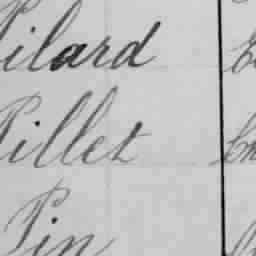 Pilard
Pillet
Pin